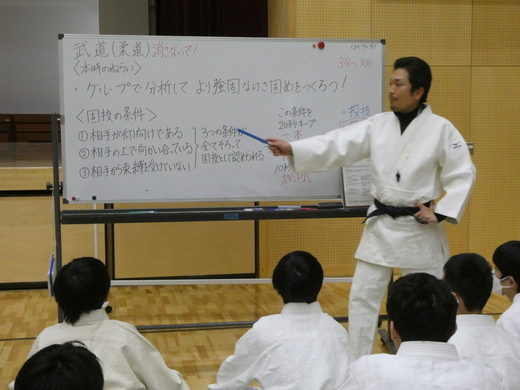 武道(柔道) 消さないで!
〈本時のねらい〉
・グループで分析して より強固なけさ固めをつくろう!
〈固技の条件〉
①相手が仰向けである
②相手の上で向かい合っている
③相手から束縛を受けていない
3つの条件が
全てそろって
固技として認められる
この条件を
20秒キープ
一本
ポイントなし
投技
MIZUNO